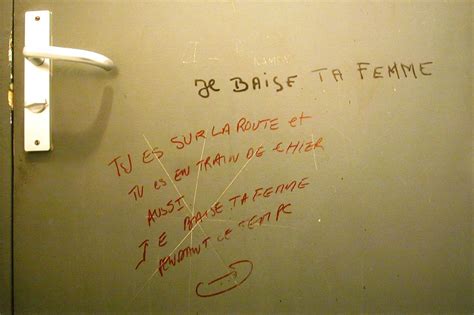 Je BAISE TA FEMME
TU ES SUR LA ROUTE et
TU es EN TRAIN DE CHIER
AUSSI
JE BAISE TA FEMME
PENDANT CE TEMPS